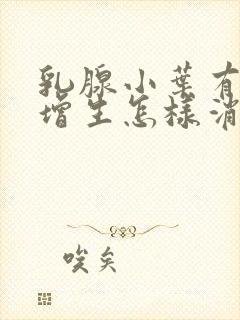 乳腺小叶有
增生怎样消
唉矣